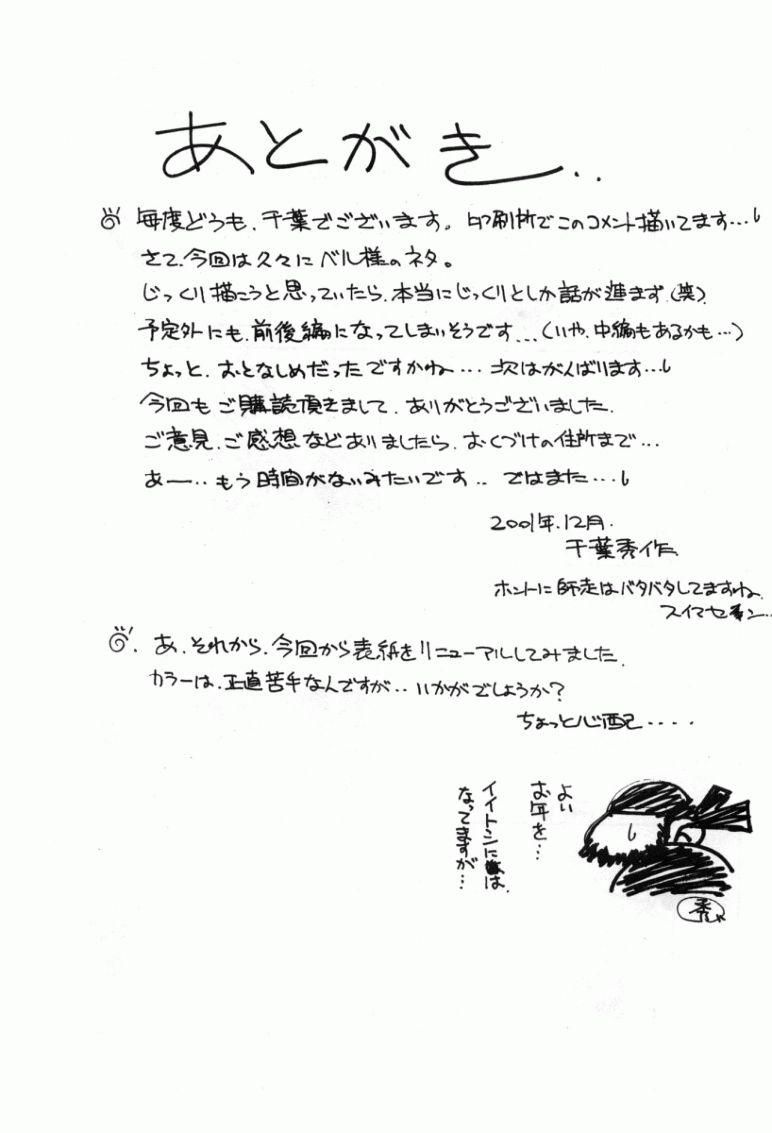 あとがき..
毎度どうも、千葉でございます。印刷所でこのコメント描いてます…
さて、今回は久々にベル様のネタ。
じっくり描こうと思っていたら、本当にじっくりとしか話が進まず(笑)、
予定外にも、前後編になってしまいそうです…(いや、中編もあるかも…)
ちょっと、おとなしめだったですかね…次はがんばります…
今回もご購読頂きまして、ありがとうございました。
ご意見、ご感想などありましたら、おくづけの住所まで…
あー‥もう時間がないみたいです‥ ではまた…
2001年、12月.
千葉秀作
ホントに師走はバタバタしてますね、
スイマセーン…
あ、それから、今回から表紙をリニューアルしてみました。
カラーは、正直苦手なんですが‥いかがでしょうか?
ちょっと心配‥‥
よい
お年を…
イイトシには、
なってますが…
秀